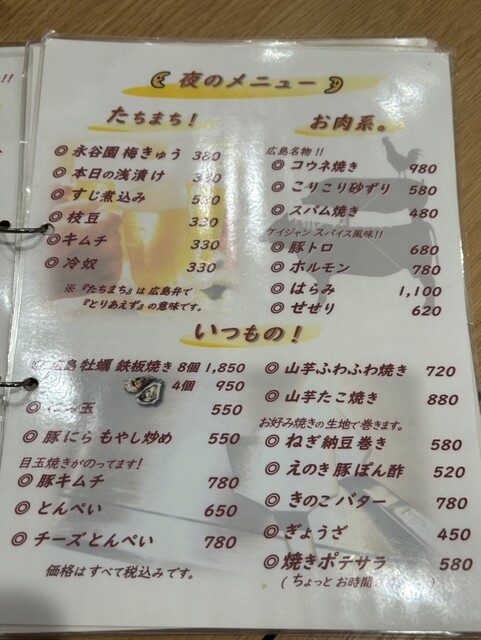 夜のメニュー
たちまち!
◎ 永谷園 梅きゅう 380
◎ 本日の浅漬け
◎ すじ煮込み
◎ 枝豆 330
◎ キムチ 330
◎ 冷奴 330
※『たちまち』は 広島弁で
『とりあえず』の意味です。
お肉系。
広島名物!!
◎ コウネ焼き 980
◎ こりこり砂ずり 580
◎ スパム焼き 480
ケイジャン スパイス風味!!
◎ 豚トロ 680
◎ ホルモン 780
◎ はらみ 1,100
◎ せせり 620
いつもの!
広島 牡蠣 鉄板焼き 8個 1,850
4個 950
玉 550
◎ 豚にら もやし炒め 550
目玉焼きがのってます!
◎ 豚キムチ 780
◎ とんぺい 650
◎ チーズとんぺい 780
価格は すべて税込みです。
◎ 山芋ふわふわ焼き 720
◎ 山芋たこ焼き 880
お好み焼きの生地で巻きます。
◎ ねぎ納豆巻き 580
◎ えのき豚ぽん酢 520
◎ きのこバター 780
◎ ぎょうざ 450
◎ 焼きポテサラ 580
(ちょっと お時間
!!